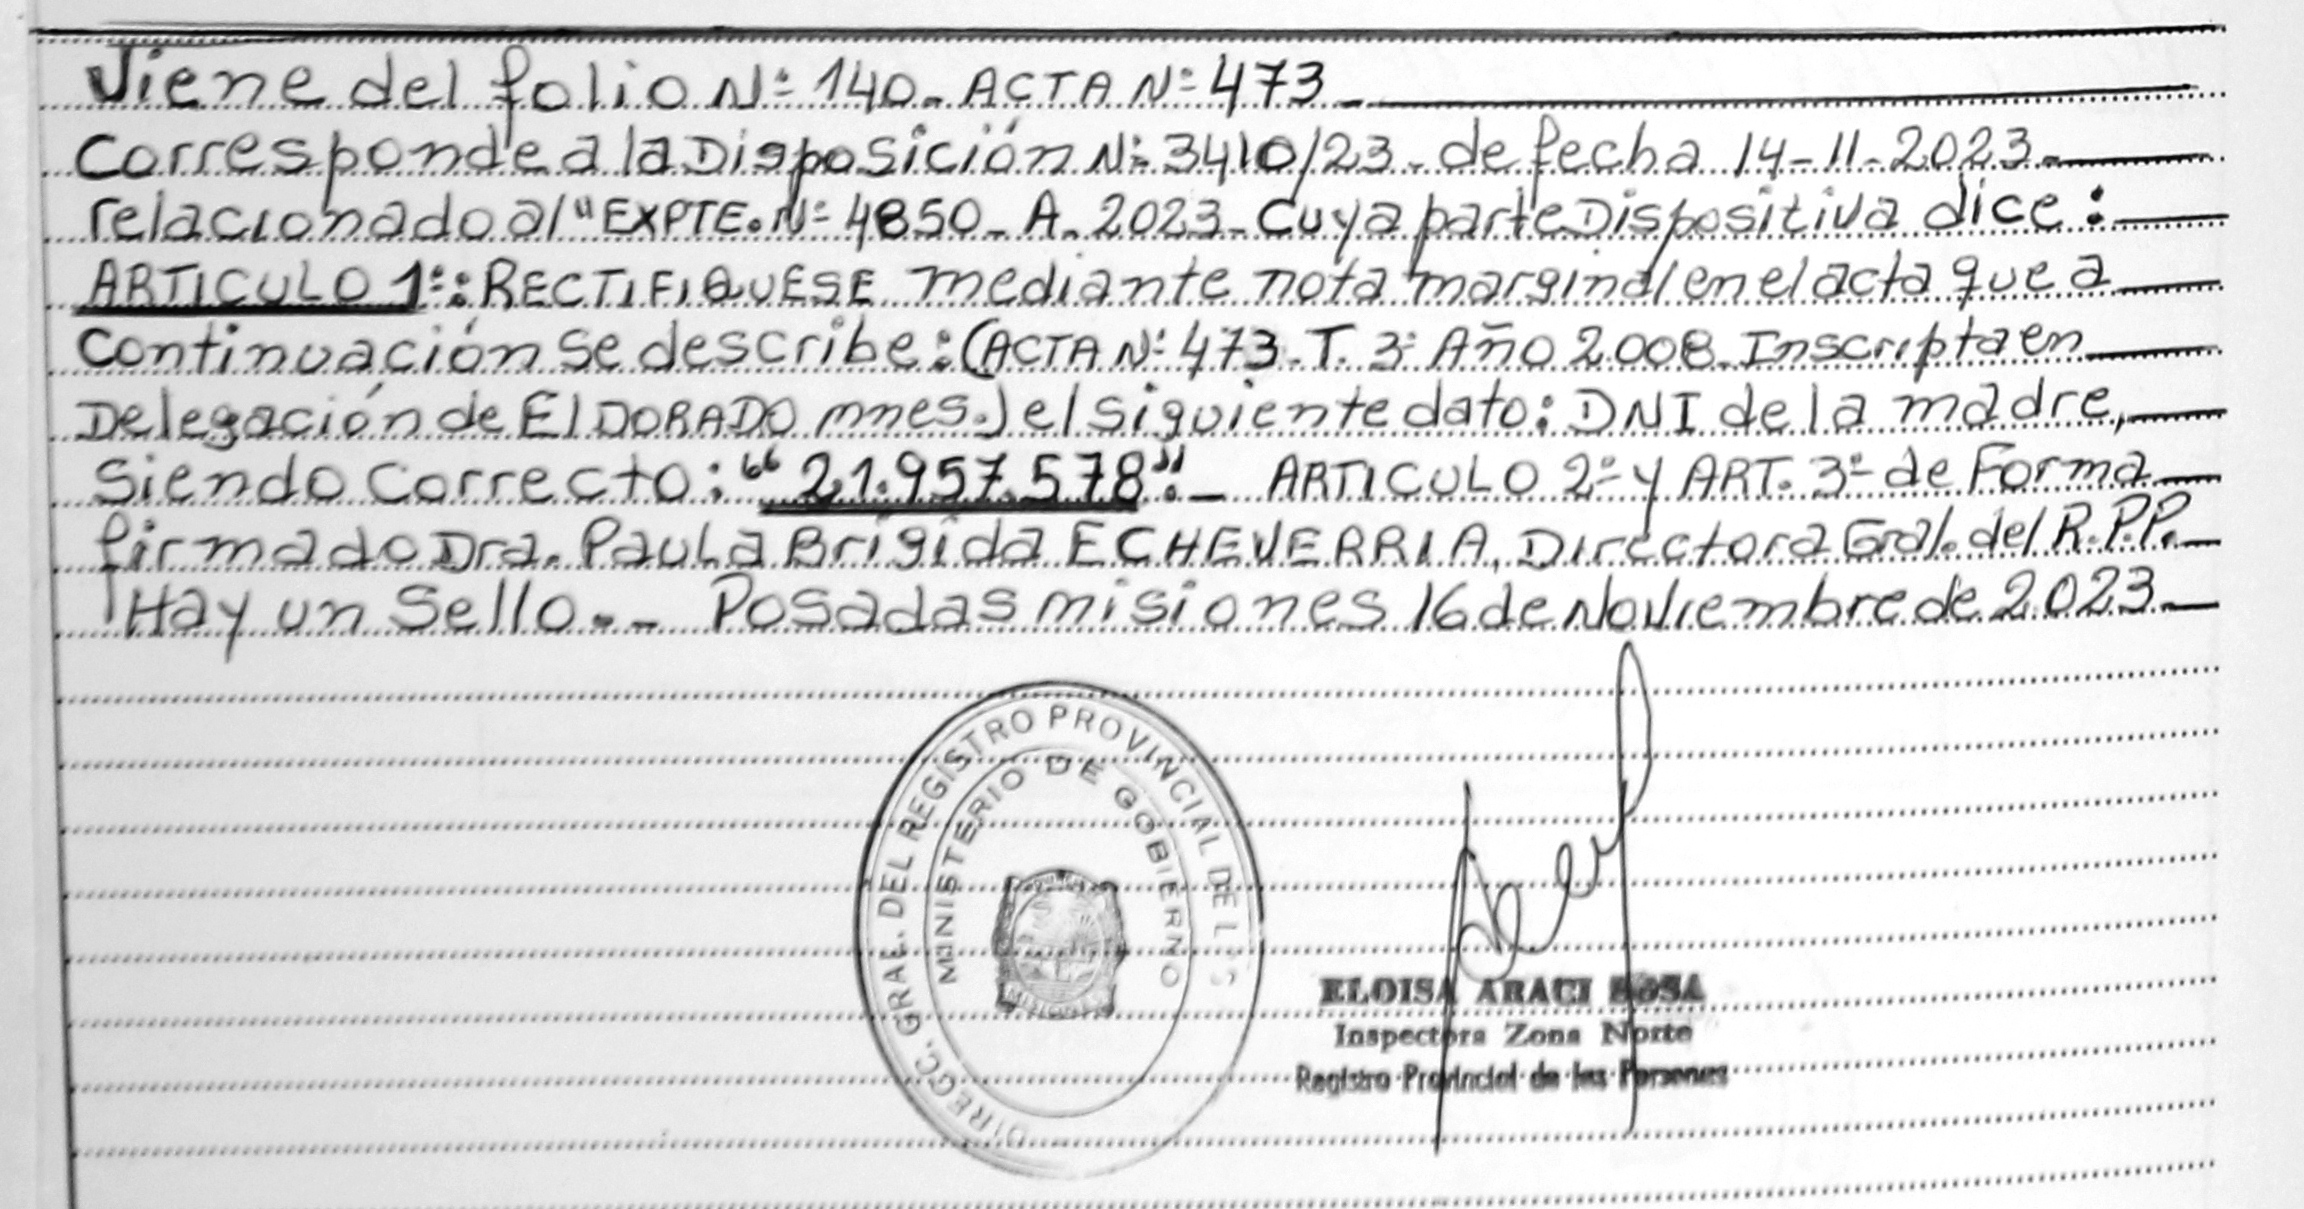 Viene del folio Nº 140. ACTA Nº 473
Corresponde a la Disposición Nº 3410/23. de fecha 14-11-2023.
relacionado al "EXPTE. Nº 4850. A. 2023. Cuya parte Dispositiva dice:
ARTICULO 1º: RECTIFIQUESE mediante nota marginal en el acta que a
Continuación se describe: (ACTA Nº 473. T. 3º Año 2008. Inscripta en
Delegación de El DORADO mnes.) el siguiente dato: DNI de la madre,
Siendo Correcto: "21.957.578". ARTICULO 2º y ART. 3º de Forma
firmado Dra. Paula Brigida ECHEVERRIA, Directora Gral. del R.P.P.
Hay un Sello. Posadas misiones 16 de Noviembre de 2023
DIRECC. GRAL. DEL REGISTRO PROVINCIAL DE L S
MINISTERIO DE GOBIERNO
MISIONES
ELOISA ARACI SOSA
Inspectora Zona Norte
Registro Provincial de las Personas